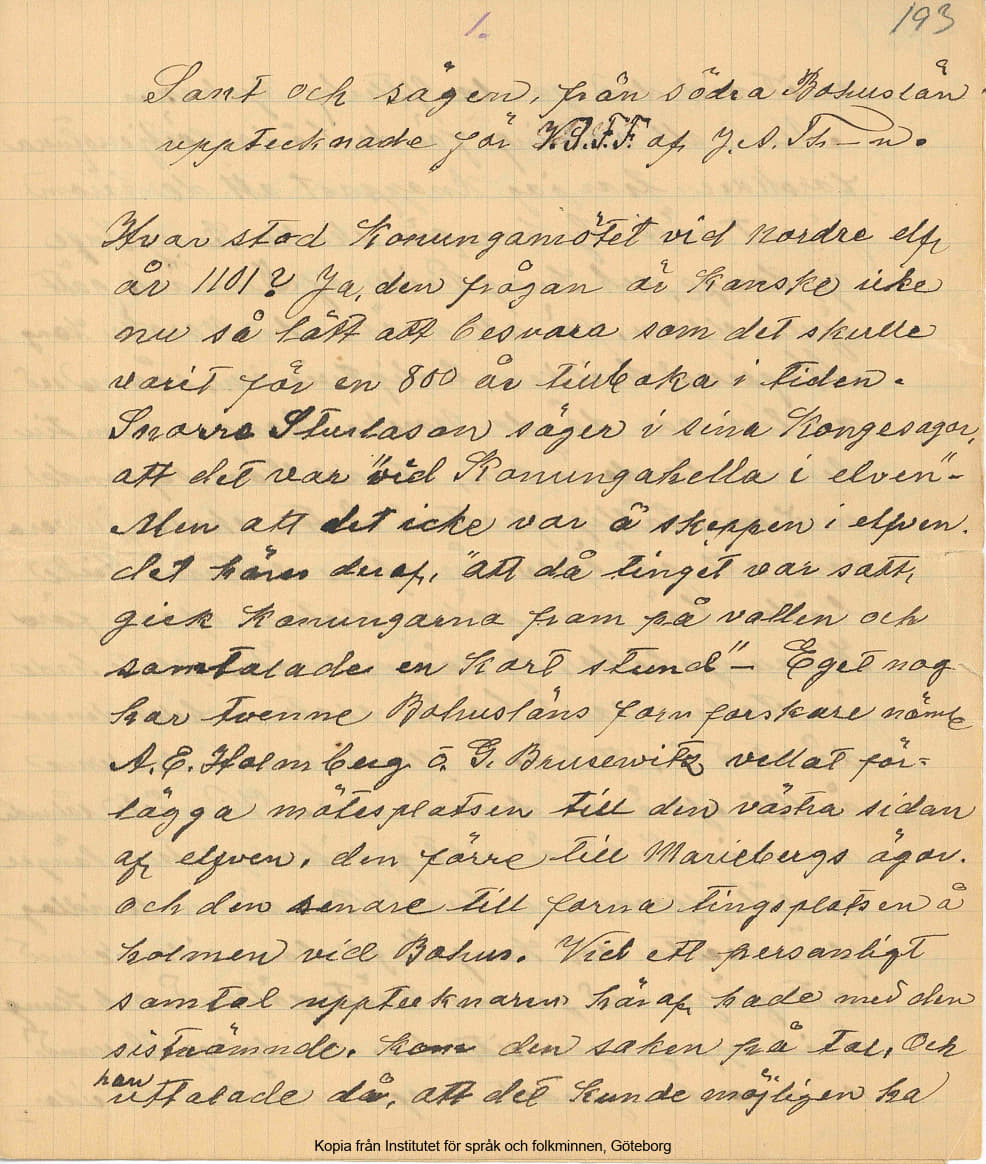 193
1.
Sant och sägen, från södra Bohuslän
upptecknade för V.S.F.F. af J.A. Th—n.
Hvar stod Konungamötet vid nordre elf,
år 1101? Ja, den frågan är kanske icke
nu så lätt att besvara som det skulle
varit för en 800 år tillbaka i tiden.
Snorre Sturlason säger i sina Kongesagor,
att det var "vid Konungahella i elven"-
Men att det icke var å skeppen i elfven.
det höres deraf, "att då tinget var satt,
gick Konungarna fram på vallen och
samtalade en kort stund"— Eget nog
har tvenne Bohusläns fornforskare näml
A.E. Holmberg o. G. Brusewitz velat för-
lägga mötesplatsen till den västra sidan
af elfven, den förre till Mariebergs ägor.
och den senare till forna tingsplatsen å
holmen vid Bohus. Vid ett personligt
samtal upptecknaren häraf, hade med den
sistnämnde. kom den saken på tal, Och
han uttalade då, att det kunde möjligen ha
Kopia från Institutet för språk och folkminnen, Göteborg